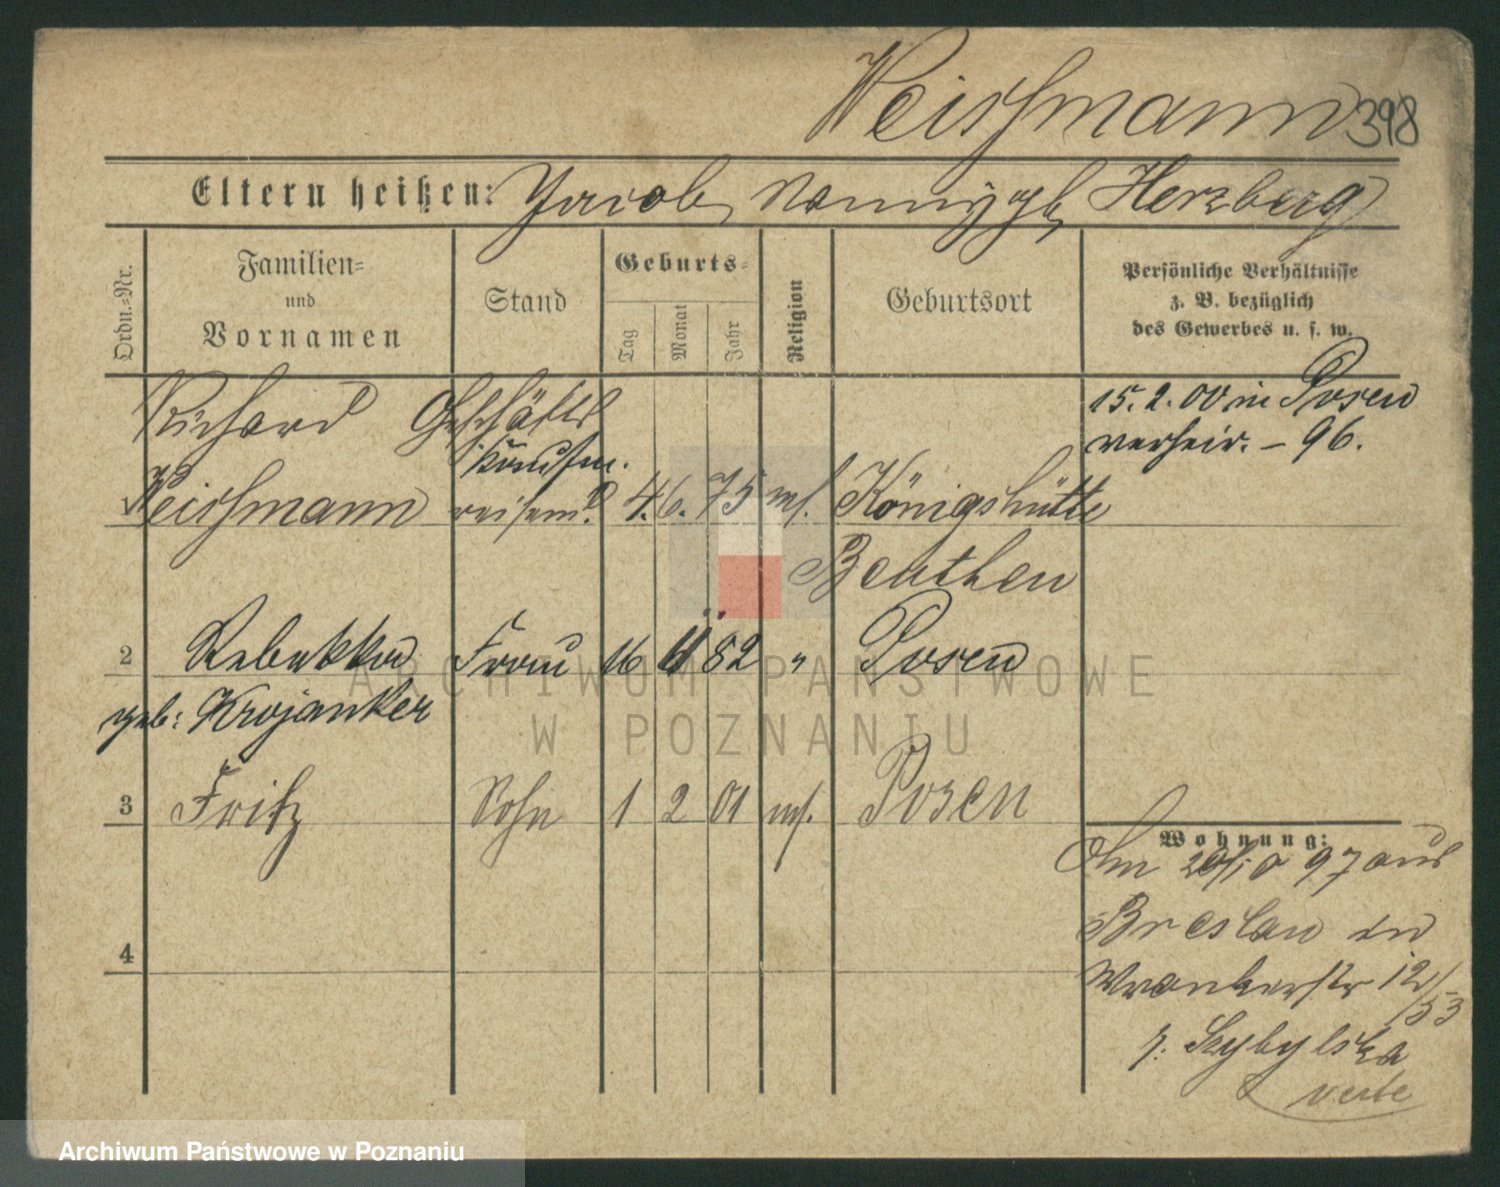 Weissmann 398
Eltern heißen: Jacob, Nanny gb, Herzberg
Ordn.-Nr.
Familien-
und
Vornamen
Stand
Geburts-
Tag
Monat
Jahr
Religion
Geburtsort
Persönliche Verhältnisse
z. B. bezüglich
des Gewerbes u. s. w.
Richard Geschäfts
Kaufm.
1 Weissmann reisend. 4. 6. 75 ms. Königshütte
Beuthen
15. 2. 00 in Posen
verheir. – 96.
2 Rebekka Frau 16 11 82 " Posen
geb: Krojanker
3 Fritz Sohn 1 2 01 ms. Posen
4
Wohnung:
Am 20/10 97 aus
Breslau in
Wronkerstr 12/53
z. Szybylska
verte
ARCHIWUM PAŃSTWOWE
W POZNANIU
Archiwum Państwowe w Poznaniu